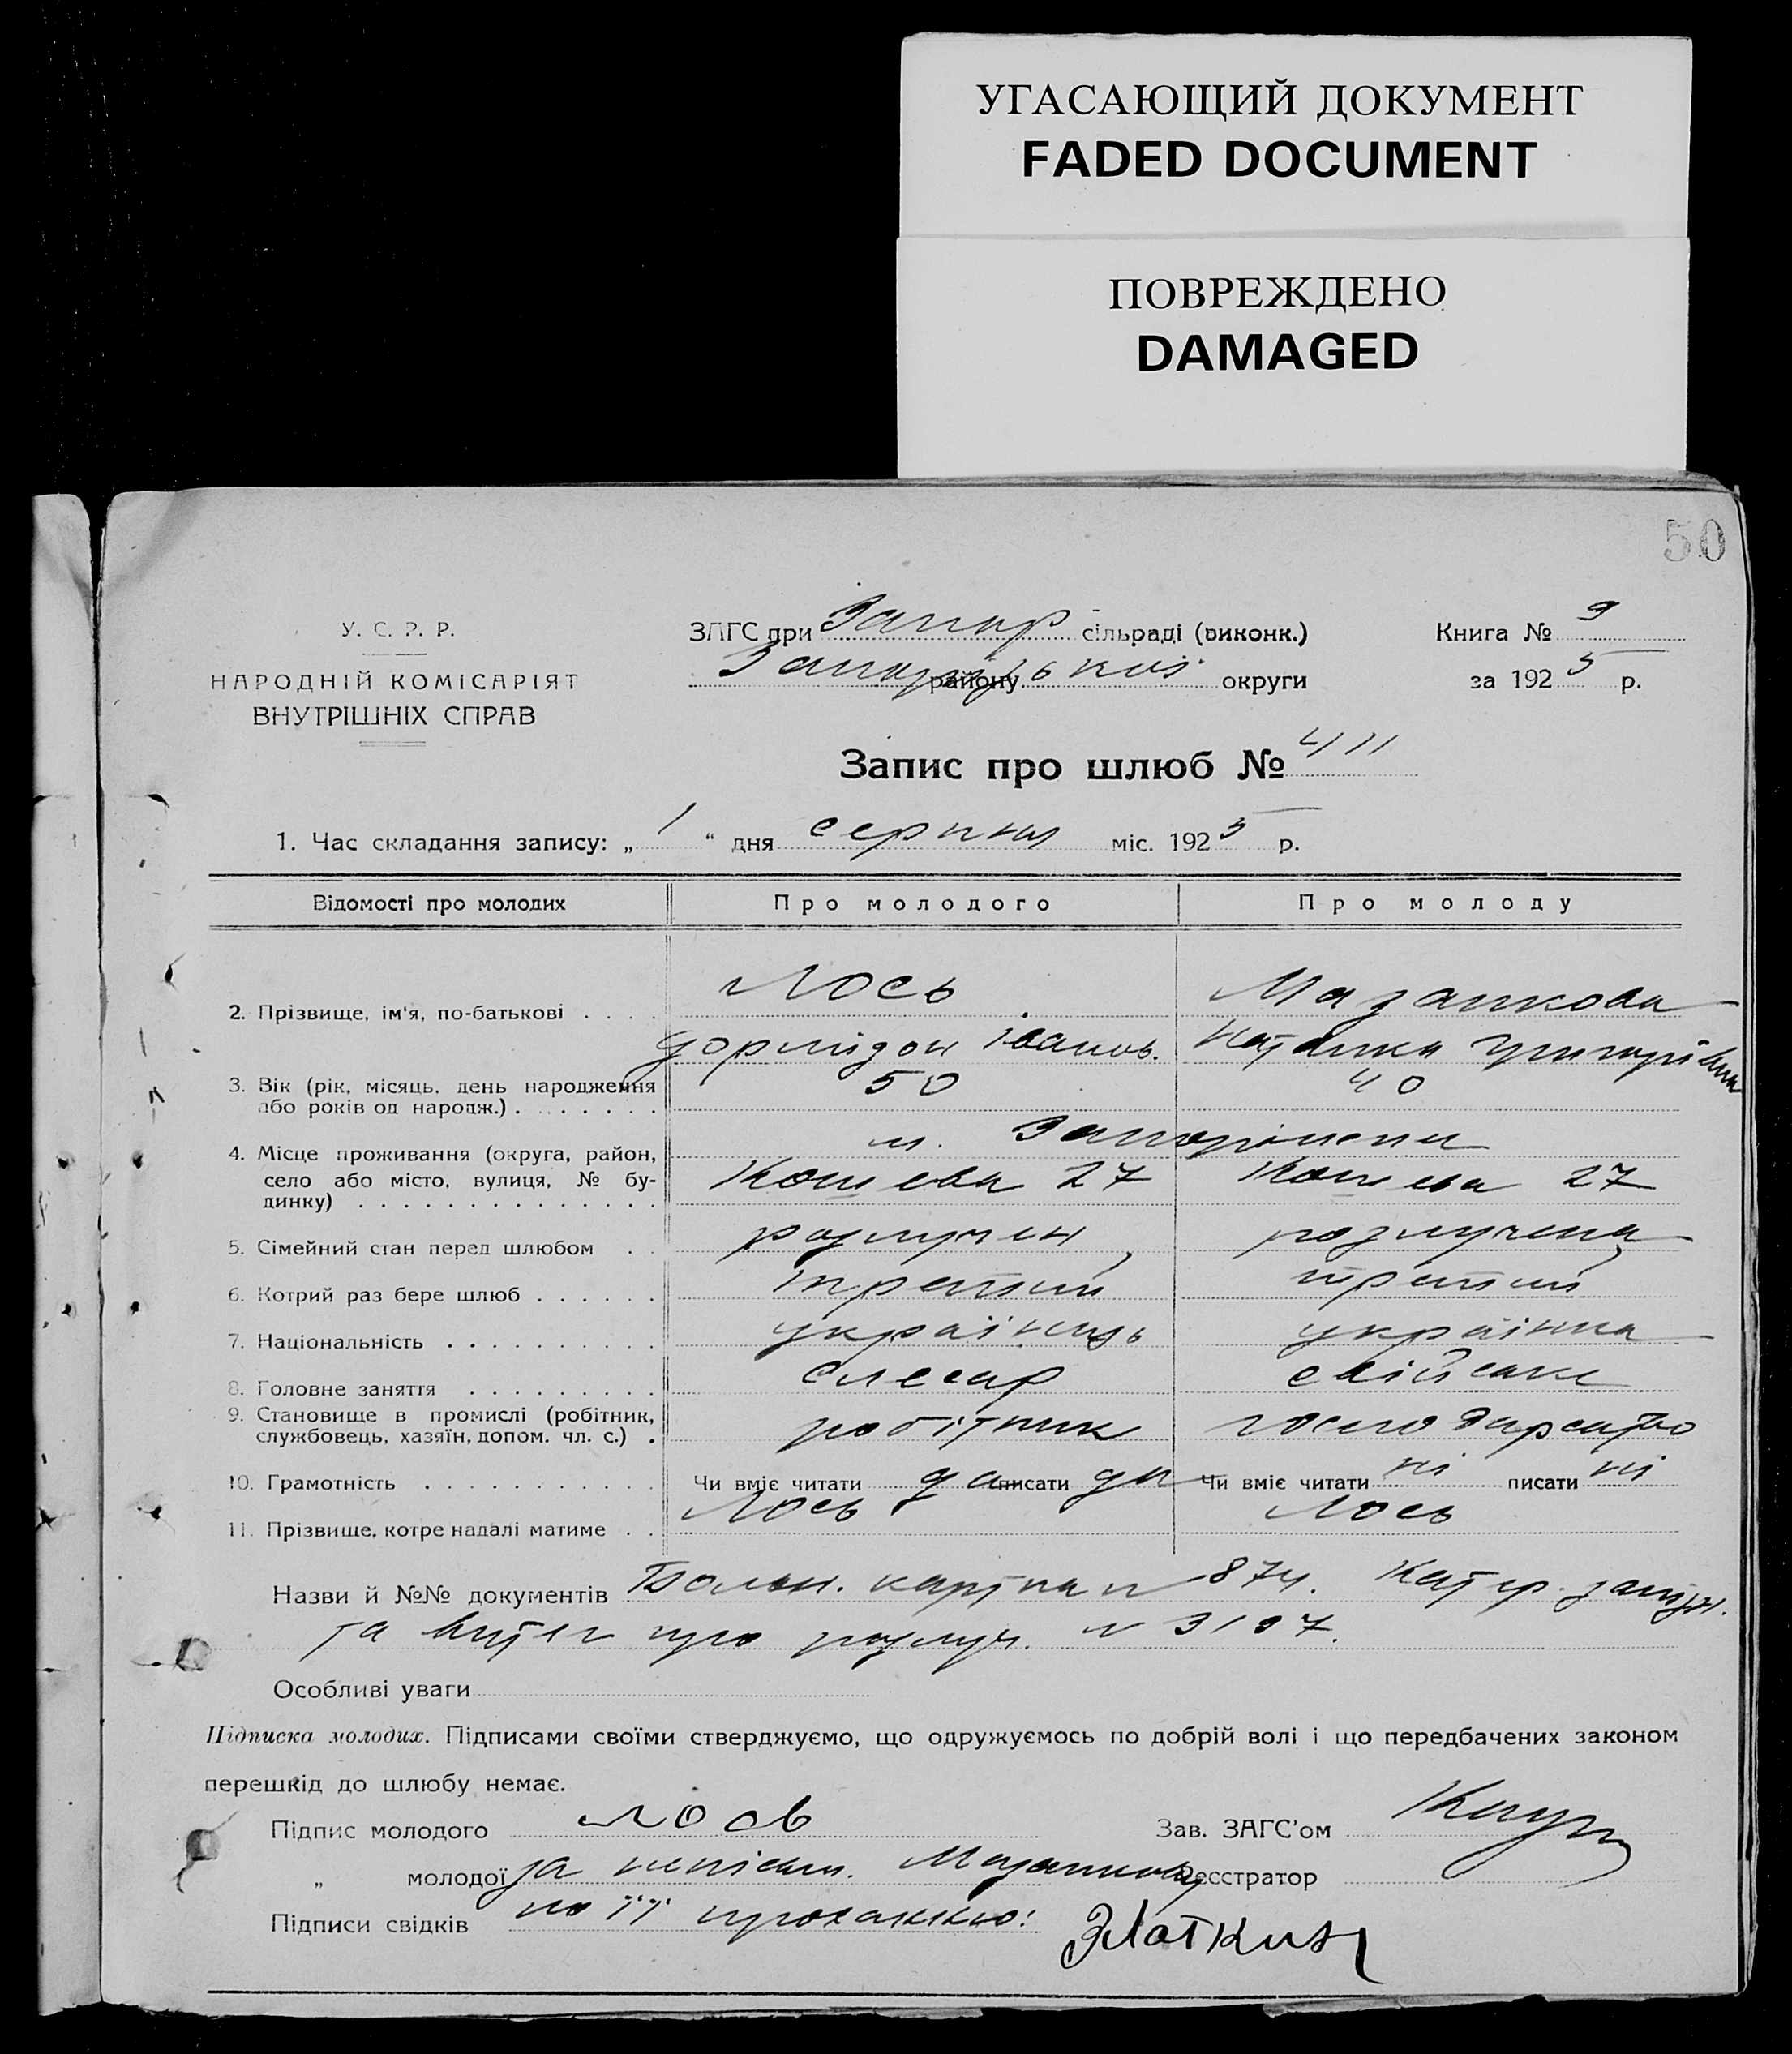 УГАСАЮЩИЙ ДОКУМЕНТ
FADED DOCUMENT
ПОВРЕЖДЕНО
DAMAGED
50
У. С. Р. Р.
НАРОДНІЙ КОМІСАРІЯТ
ВНУТРІШНІХ СПРАВ
ЗАГС при Запор сільраді (виконк.)
району Запорізької округи
Книга № 9
за 1925 р.
Запис про шлюб № 411
1. Час складання запису: „ 1 “ дня серпня міс. 1925 р.
Відомості про молодих Про молодого Про молоду
2. Прізвище, ім'я, по-батькові . . . . Лось Мазанкова
Дормідон Іванов. Григорівна
3. Вік (рік, місяць, день народження 50 40
або років од народж.) . . . . . . .
4. Місце проживання (округа, район, м. Запоріжжя
село або місто, вулиця, № бу- Кошева 27 Кошева 27
динку) . . . . . . . . . . . . . .
5. Сімейний стан перед шлюбом . . розлучен розлучена
6. Котрий раз бере шлюб . . . . . . третій третій
7. Національність . . . . . . . . . . українець українка
8. Головне заняття . . . . . . . . . слесар свійське
9. Становище в промислі (робітник, робітник господарство
службовець, хазяїн, допом. чл. с.) .
10. Грамотність . . . . . . . . . . . Чи вміє читати да писати да Чи вміє читати ні писати ні
11. Прізвище, котре надалі матиме . . Лось Лось
Назви й №№ документів картка № 874. Катер. заліз.
та витяг про розлуч. № 3107.
Особливі уваги
Підписка молодих. Підписами своїми стверджуємо, що одружуємось по добрій волі і що передбачених законом
перешкід до шлюбу немає.
Підпис молодого Лось Зав. ЗАГС'ом
„ молодої за непісьм. Мазанкову Реєстратор
Підписи свідків по її проханню: Златкин